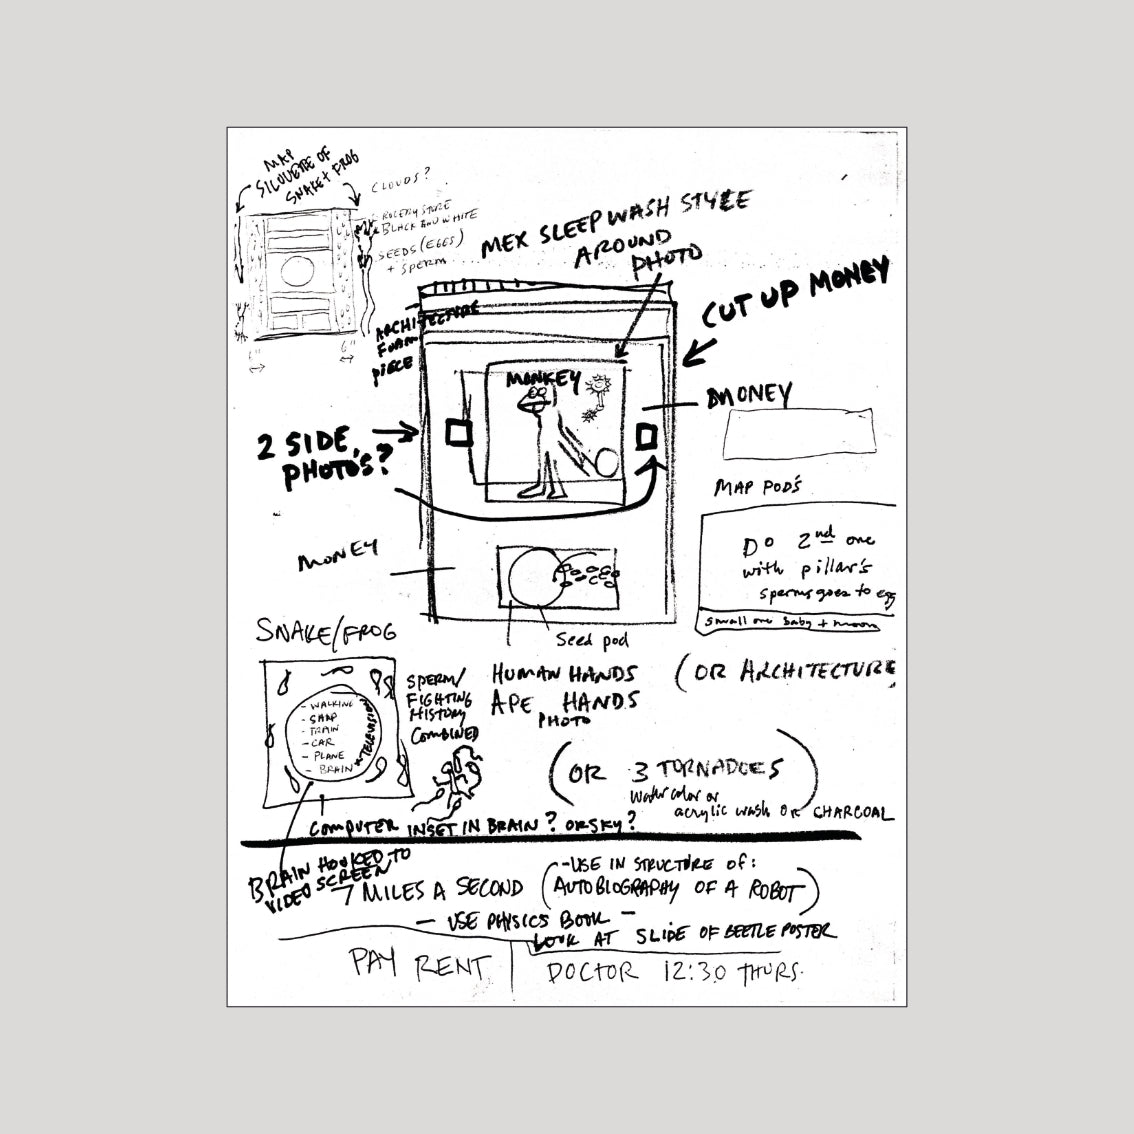 MAP
SILOUETTE OF
SNAKE + FROG
CLOUDS?
BLACK AND WHITE
SEEDS (EGGS)
+ SPERM
6"
6"
MEX SLEEP WASH STYLE
AROUND
PHOTO
CUT UP MONEY
ARCHITECTURE
FOAM
PIECE
MONKEY
MONEY
2 SIDE
PHOTOS?
MAP POD'S
DO 2nd one
with pillar's
sperms goes to egg
small one baby + moon
MONEY
Seed pod
SNAKE/FROG
HUMAN HANDS
APE HANDS
PHOTO
(OR ARCHITECTURE
SPERM/
FIGHTING
HISTORY
COMBINED
- WALKING
- SHIP
- TRAIN
- CAR
- PLANE
- BRAIN
TELEVISION
(OR 3 TORNADOES)
Watercolor or
acrylic wash OR CHARCOAL
COMPUTER INSET IN BRAIN? OR SKY?
BRAIN HOOKED TO
VIDEO SCREEN
7 MILES A SECOND
(-USE IN STRUCTURE OF:
AUTOBIOGRAPHY OF A ROBOT)
- USE PHYSICS BOOK -
LOOK AT SLIDE OF BEETLE POSTER
PAY RENT
DOCTOR 12:30 THURS.